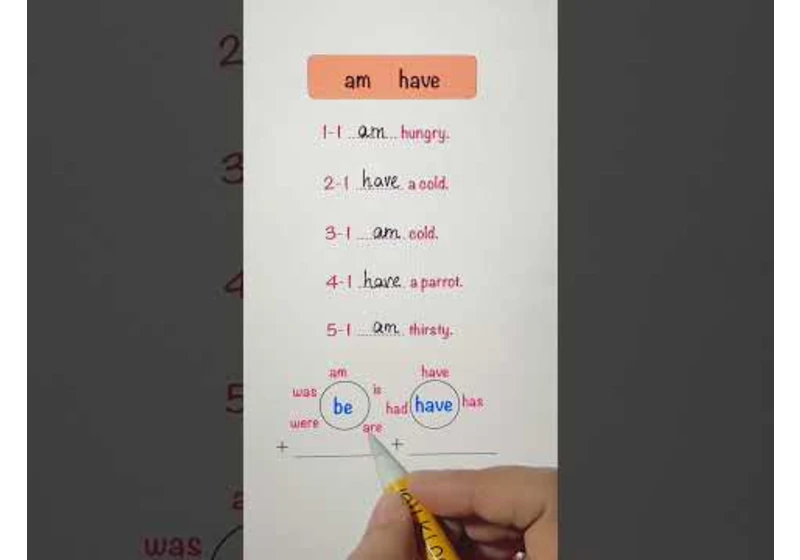 am have
1-I am hungry.
2-I have a cold.
3-I am cold.
4-I have a parrot.
5-I am thirsty.
am have
was is had has
be have
were are
+ +
2
3
4
5
a
was